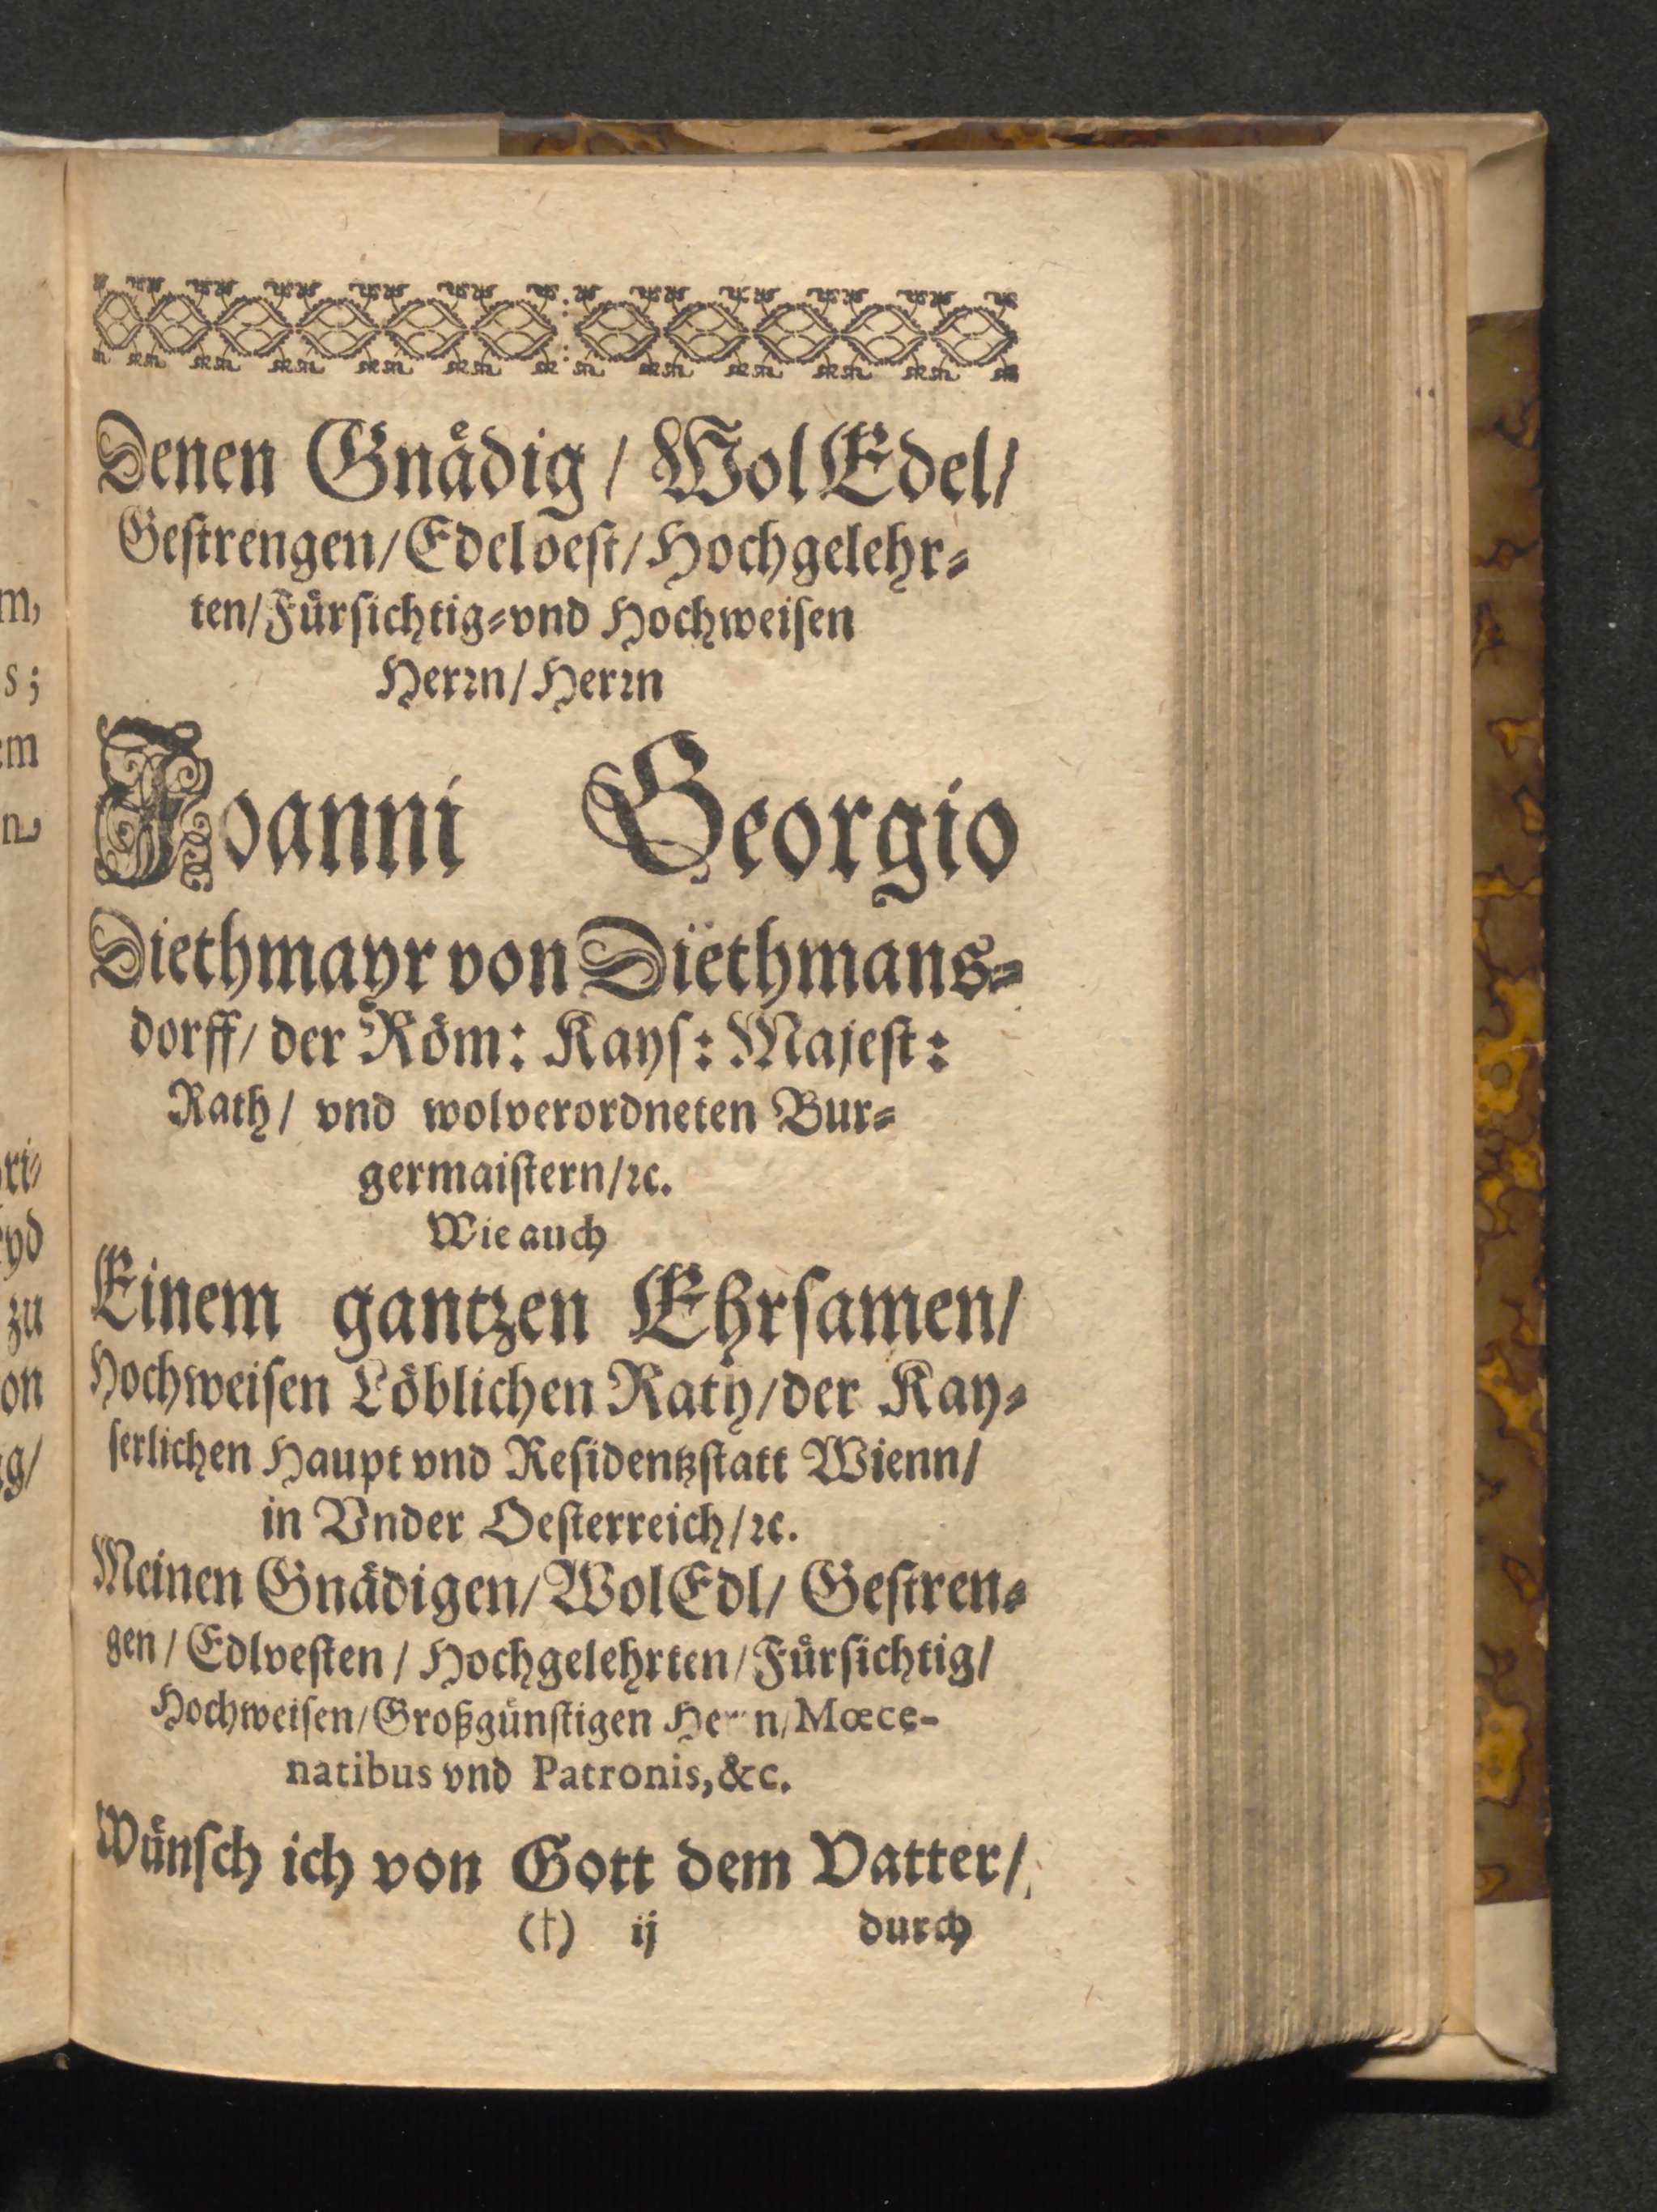 Denen Gnådig / Wol Edel /
Gestrengen / Edelvest / Hochgelehr⸗
ten / Fůrsichtig⸗vnd Hochweisen
Herꝛn / Herꝛn
Joanni Georgio
Diethmayr von Diëthmans⸗
dorff / der Röm: Kays: Majest:
Rath / vnd wolverordneten Bur⸗
germaistern / ꝛc.
Wie auch
Einem gantzen Ehrsamen /
Hochweisen Löblichen Rath / der Kay⸗
serlichen Haupt vnd Residentzstatt Wienn /
in Vnder Oesterreich / ꝛc.
Meinen Gnådigen / WolEdl / Gestren⸗
gen / Edlvesten / Hochgelehrten / Fůrsichtig /
Hochweisen / Großgůnstigen Herꝛn / Mœce-
natibus vnd Patronis, &c.
Wůnsch ich von Gott dem Vatter /
(†) ij durch